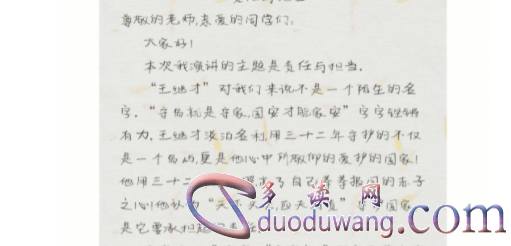 尊敬的老师,亲爱的同学们:
大家好!
本次我演讲的主题是责任与担当.
"王继才"对我们来说不是一个陌生的名
字."守岛就是守家,国安才能家安"字字铿锵
有力.王继才淡泊名利,用三十二年守护的不仅
是一个岛屿,更是他心中所敬仰的爱护的国家!
他用三十二 了自己尽孝报国的赤子
之心!他认为"天不 国家
是它要承担起
多读网
duoduwang.com